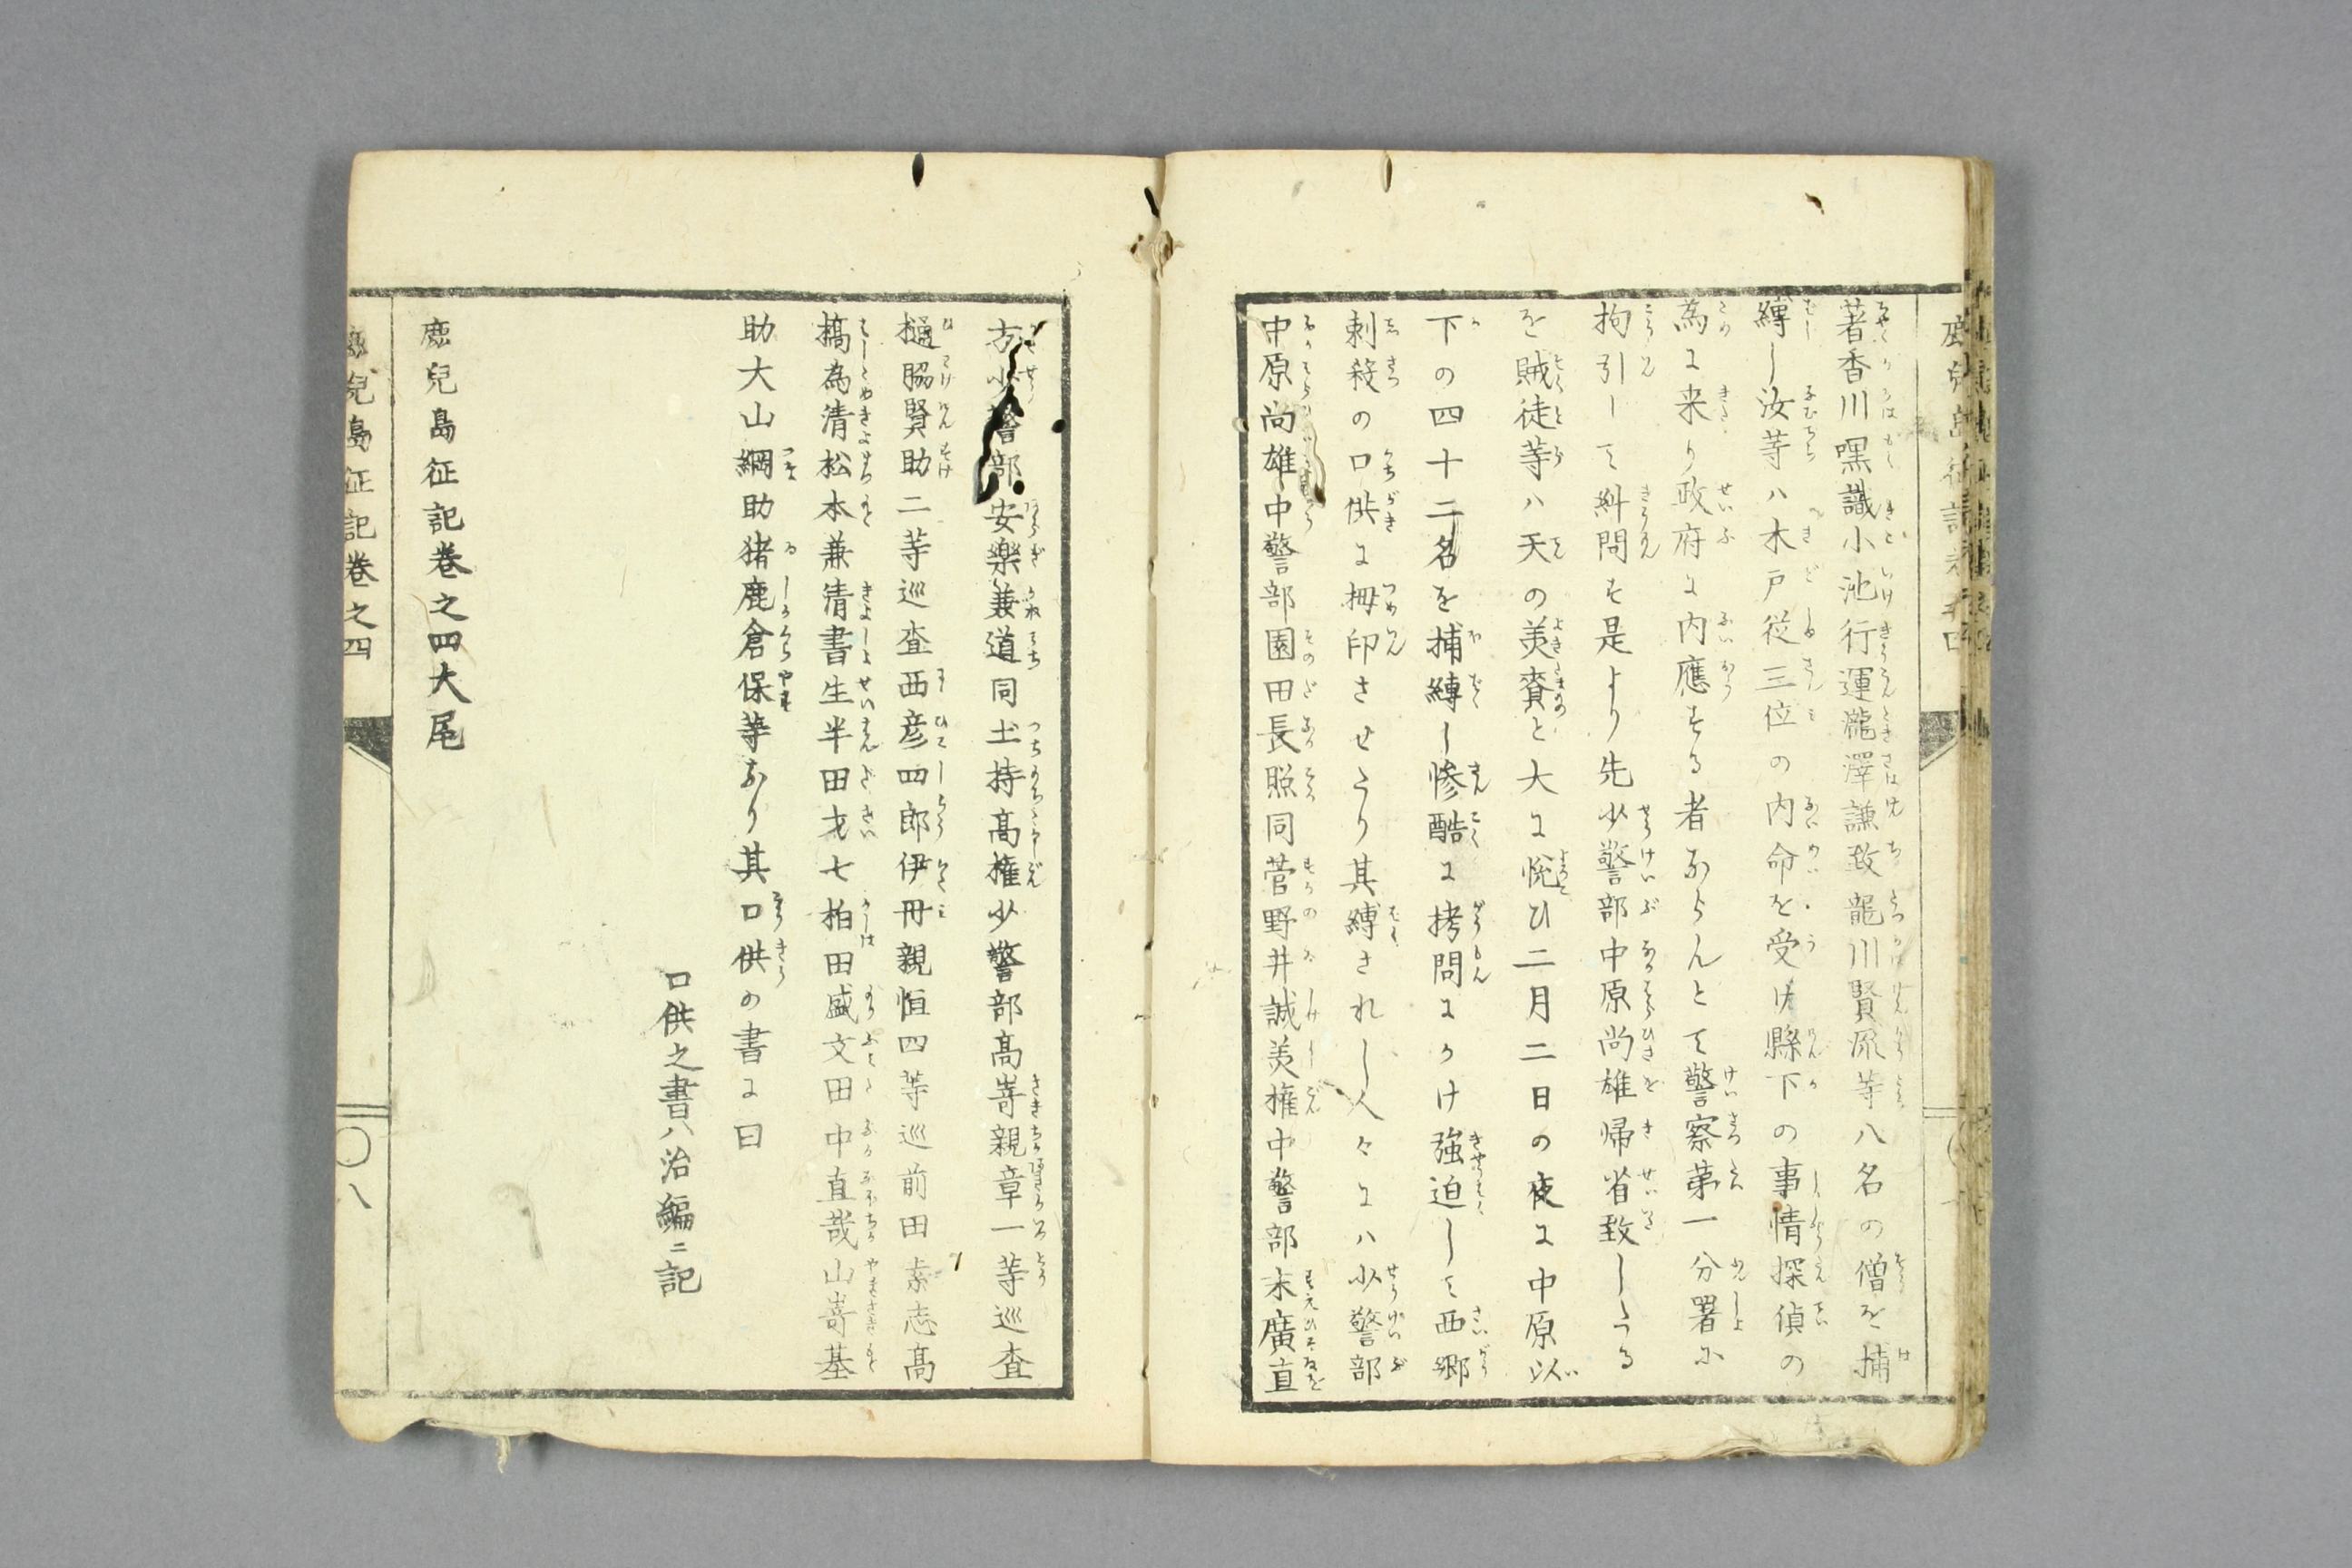 著香川嘿識小池行運瀧澤謙致龍川賢流等八名の僧を捕
縛し汝等ハ木戸従三位の内命を受け縣下の事情探偵の
為に来り政府に内應する者ならんとて警察第一分署に
拘引して糾問す是より先少警部中原尚雄帰省致しゝる
を賊徒等ハ天の美賚と大に悦ひ二月二日の夜に中原以
下の四十二名を捕縛し惨酷に拷問にかけ強迫して西郷
刺殺の口供に拇印させたり其縛されし人々にハ少警部
中原尚雄中警部園田長照同菅野井誠美権中警部末廣直
方少警部安樂兼道同土持髙権少警部髙嵜親章一等巡査
樋脇賢助二等巡査西彦四郎伊丹親恒四等巡前田素志髙
橋為清松本兼清書生半田才七柏田盛文田中直哉山嵜基
助大山綱助猪鹿倉保等なり其口供の書に曰
口供之書ハ治編ニ記
鹿兒島征記巻之四大尾
鹿兒島征記巻之四
〇八